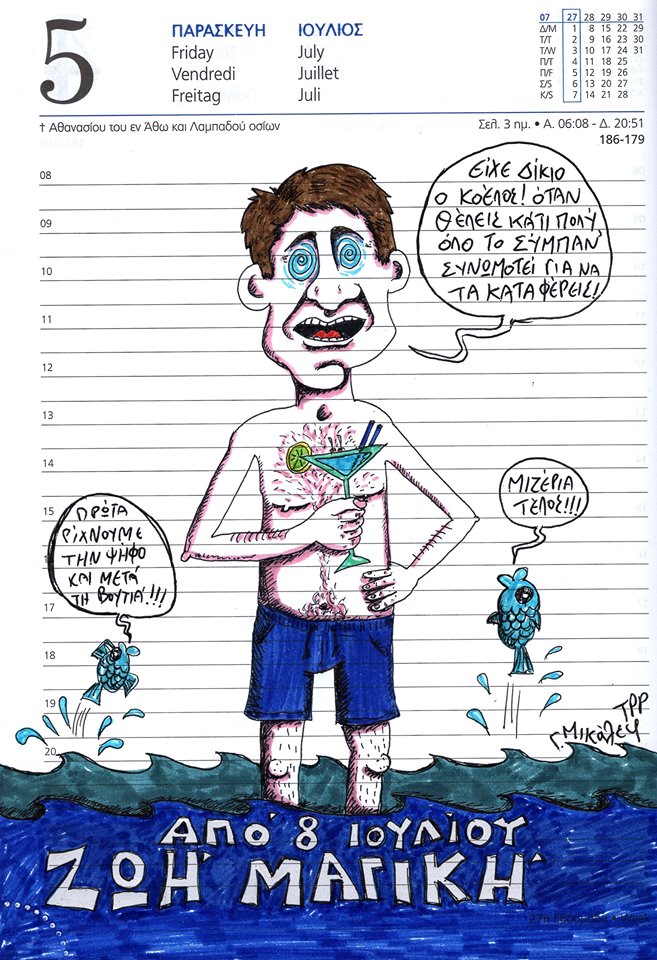 5
ΠΑΡΑΣΚΕΥΗ ΙΟΥΛΙΟΣ
Friday July
Vendredi Juillet
Freitag Juli
07 27 28 29 30 31
Δ/Μ 1 8 15 22 29
Τ/Τ 2 9 16 23 30
Τ/W 3 10 17 24 31
Π/Τ 4 11 18 25
Π/F 5 12 19 26
Σ/S 6 13 20 27
Κ/S 7 14 21 28
† Αθανασίου του εν Άθω και Λαμπαδού οσίων
Σελ. 3 ημ. • Α. 06:08 - Δ. 20:51
186-179
08
09
10
11
12
13
14
15
17
18
19
20
ΕΙΧΕ ΔΙΚΙΟ
Ο ΚΟΕΛΟΣ! ΌΤΑΝ
ΘΈΛΕΙΣ ΚΆΤΙ ΠΟΛΎ,
ΌΛΟ ΤΟ ΣΎΜΠΑΝ
ΣΥΝΩΜΟΤΕΙ ΓΙΑ ΝΑ
ΤΑ ΚΑΤΑΦΈΡΕΙΣ!
ΠΡΏΤΑ
ΡΙΧΝΟΥΜΕ
ΤΗΝ ΨΗΦΟ
ΚΑΙ ΜΕΤΆ
ΤΗ ΒΟΥΤΙΆ!!!
ΜΙΖΈΡΙΑ
ΤΈΛΟΣ!!!
ΑΠΌ 8 ΙΟΥΛΙΟΥ
ΖΩΉ ΜΑΓΙΚΉ